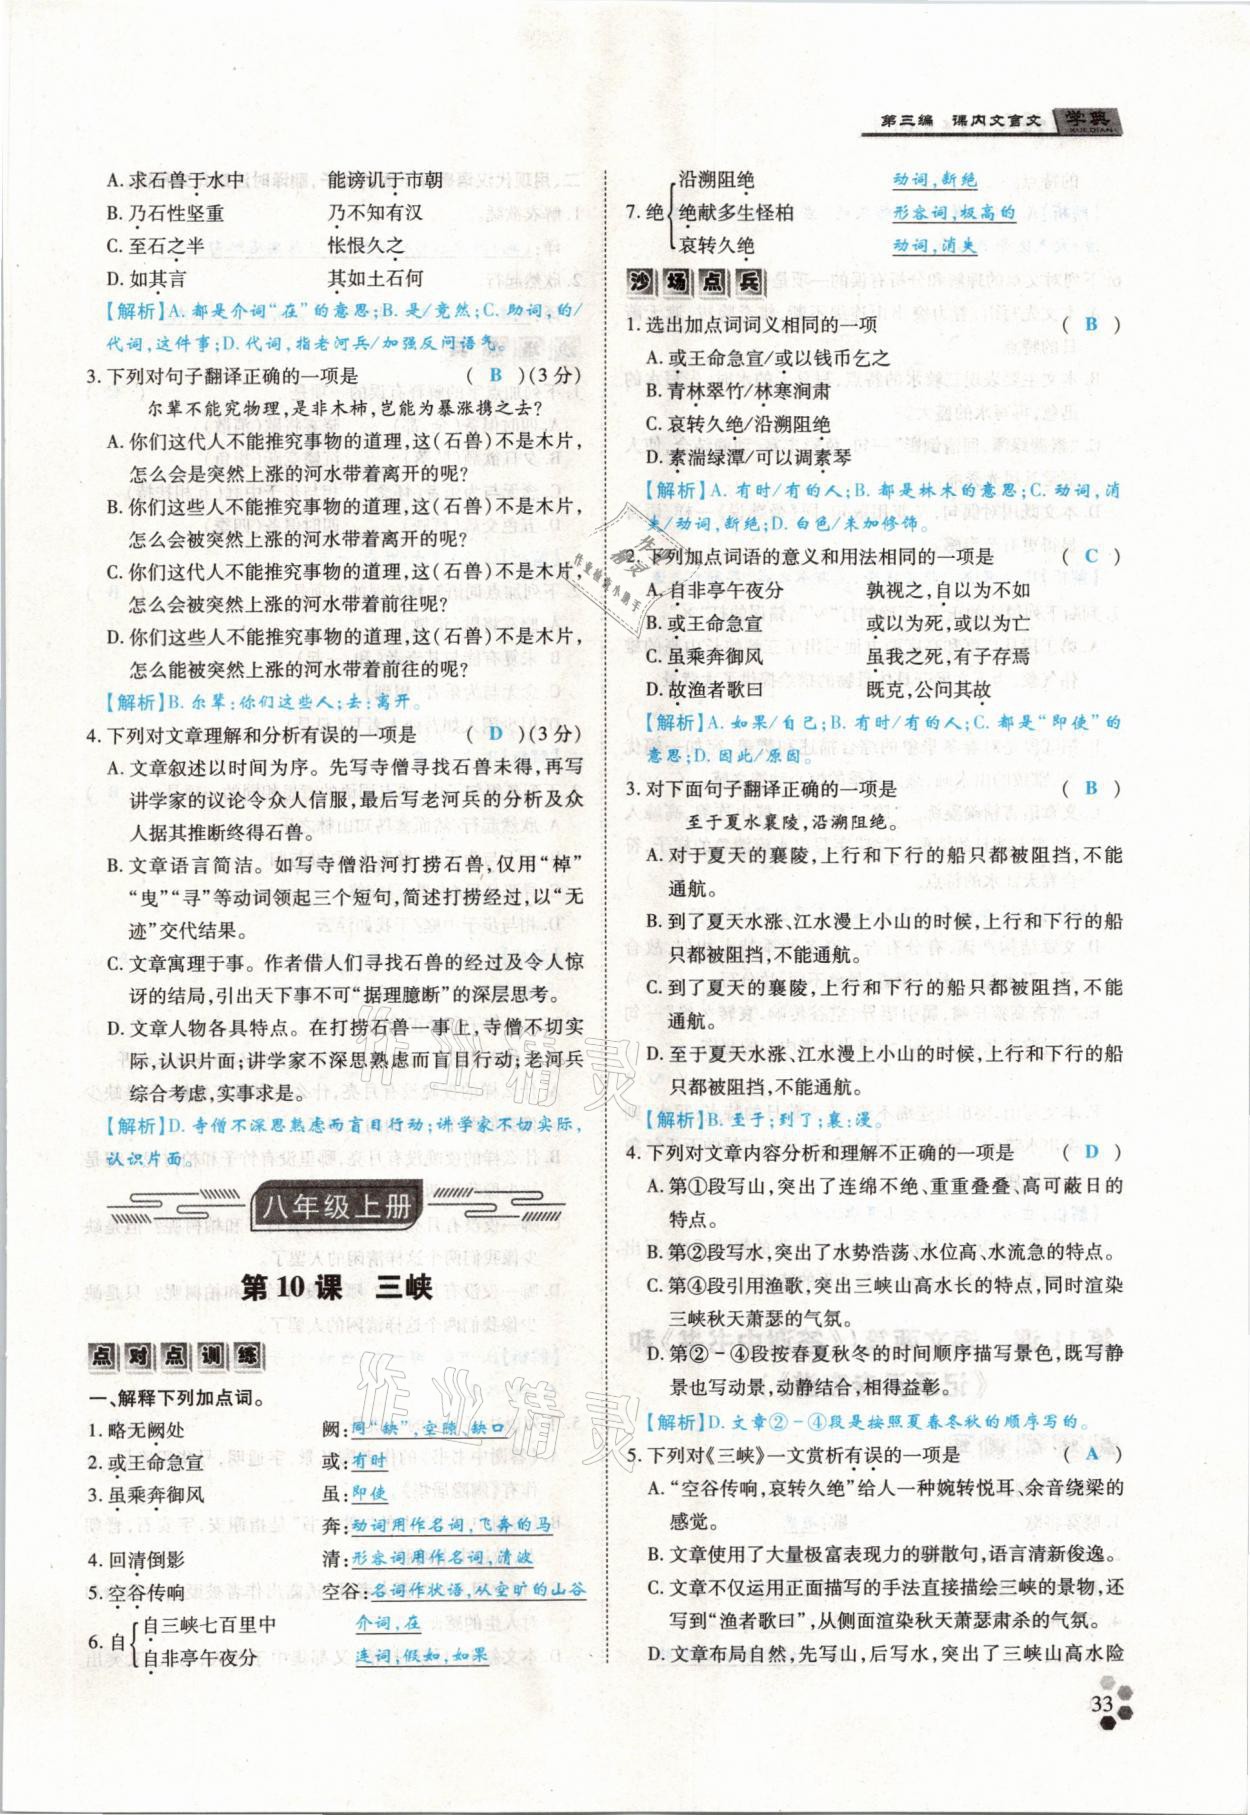 第三编 课内文言文 学典
XUE DIAN
A. 求石兽于水中 能谤讥于市朝
B. 乃石性坚重 乃不知有汉
C. 至石之半 怅恨久之
D. 如其言 其如土石何
【解析】A. 都是介词“在”的意思;B. 是/竟然;C. 助词,的/
代词,这件事;D. 代词,指老河兵/加强反问语气。
3. 下列对句子翻译正确的一项是 ( B )(3 分)
尔辈不能究物理,是非木杮,岂能为暴涨携之去?
A. 你们这代人不能推究事物的道理,这(石兽)不是木片,
怎么会是突然上涨的河水带着离开的呢?
B. 你们这些人不能推究事物的道理,这(石兽)不是木片,
怎么会被突然上涨的河水带着离开的呢?
C. 你们这些人不能推究事物的道理,这(石兽)不是木片,
怎么会被突然上涨的河水带着前往的呢?
D. 你们这些人不能推究事物的道理,这(石兽)不是木片,
怎么能被突然上涨的河水带着前往的呢?
【解析】B. 尔辈:你们这些人;去:离开。
4. 下列对文章理解和分析有误的一项是 ( D )(3 分)
A. 文章叙述以时间为序。先写寺僧寻找石兽未得,再写
讲学家的议论令众人信服,最后写老河兵的分析及众
人据其推断终得石兽。
B. 文章语言简洁。如写寺僧沿河打捞石兽,仅用“棹”
“曳”“寻”等动词领起三个短句,简述打捞经过,以“无
迹”交代结果。
C. 文章寓理于事。作者借人们寻找石兽的经过及令人惊
讶的结局,引出天下事不可“据理臆断”的深层思考。
D. 文章人物各具特点。在打捞石兽一事上,寺僧不切实
际,认识片面;讲学家不深思熟虑而盲目行动;老河兵
综合考虑,实事求是。
【解析】D. 寺僧不深思熟虑而盲目行动;讲学家不切实际,
认识片面。
八年级上册
第 10 课 三峡
点对点训练
一、解释下列加点词。
1. 略无阙处 阙:同“缺”,空隙、缺口
2. 或王命急宣 或:有时
3. 虽乘奔御风 虽:即使
奔:动词用作名词,飞奔的马
4. 回清倒影 清:形容词用作名词,清波
5. 空谷传响 空谷:名词作状语,从空旷的山谷
自三峡七百里中 介词,在
6. 自
自非亭午夜分 连词,假如,如果
沿溯阻绝 动词,断绝
7. 绝 绝𪩘多生怪柏 形容词,极高的
哀转久绝 动词,消失
沙场点兵
1. 选出加点词词义相同的一项 ( B )
A. 或王命急宣/或以钱币乞之
B. 青林翠竹/林寒涧肃
C. 哀转久绝/沿溯阻绝
D. 素湍绿潭/可以调素琴
【解析】A. 有时/有的人;B. 都是林木的意思;C. 动词,消
失/动词,断绝;D. 白色/未加修饰。
2. 下列加点词语的意义和用法相同的一项是 ( C )
A. 自非亭午夜分 孰视之,自以为不如
B. 或王命急宣 或以为死,或以为亡
C. 虽乘奔御风 虽我之死,有子存焉
D. 故渔者歌曰 既克,公问其故
【解析】A. 如果/自己;B. 有时/有的人;C. 都是“即使”的
意思;D. 因此/原因。
3. 对下面句子翻译正确的一项是 ( B )
至于夏水襄陵,沿溯阻绝。
A. 对于夏天的襄陵,上行和下行的船只都被阻挡,不能
通航。
B. 到了夏天水涨、江水漫上小山的时候,上行和下行的船
只都被阻挡,不能通航。
C. 到了夏天的襄陵,上行和下行的船只都被阻挡,不能
通航。
D. 至于夏天水涨、江水漫上小山的时候,上行和下行的船
只都被阻挡,不能通航。
【解析】B. 至于:到了;襄:漫。
4. 下列对文章内容分析和理解不正确的一项是 ( D )
A. 第①段写山,突出了连绵不绝、重重叠叠、高可蔽日的
特点。
B. 第②段写水,突出了水势浩荡、水位高、水流急的特点。
C. 第④段引用渔歌,突出三峡山高水长的特点,同时渲染
三峡秋天萧瑟的气氛。
D. 第②－④段按春夏秋冬的时间顺序描写景色,既写静
景也写动景,动静结合,相得益彰。
【解析】D. 文章②－④段是按照夏春冬秋的顺序写的。
5. 下列对《三峡》一文赏析有误的一项是 ( A )
A. “空谷传响,哀转久绝”给人一种婉转悦耳、余音绕梁的
感觉。
B. 文章使用了大量极富表现力的骈散句,语言清新俊逸。
C. 文章不仅运用正面描写的手法直接描绘三峡的景物,还
写到“渔者歌曰”,从侧面渲染秋天萧瑟肃杀的气氛。
D. 文章布局自然,先写山,后写水,突出了三峡山高水险
33
作业精灵
作业精灵
作业精灵
作业检查小助手